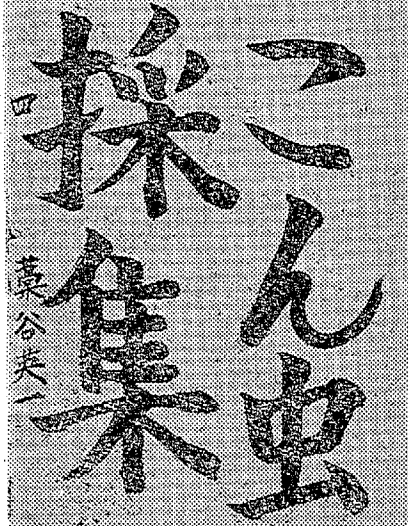 こん虫
採集
四
藁谷英一